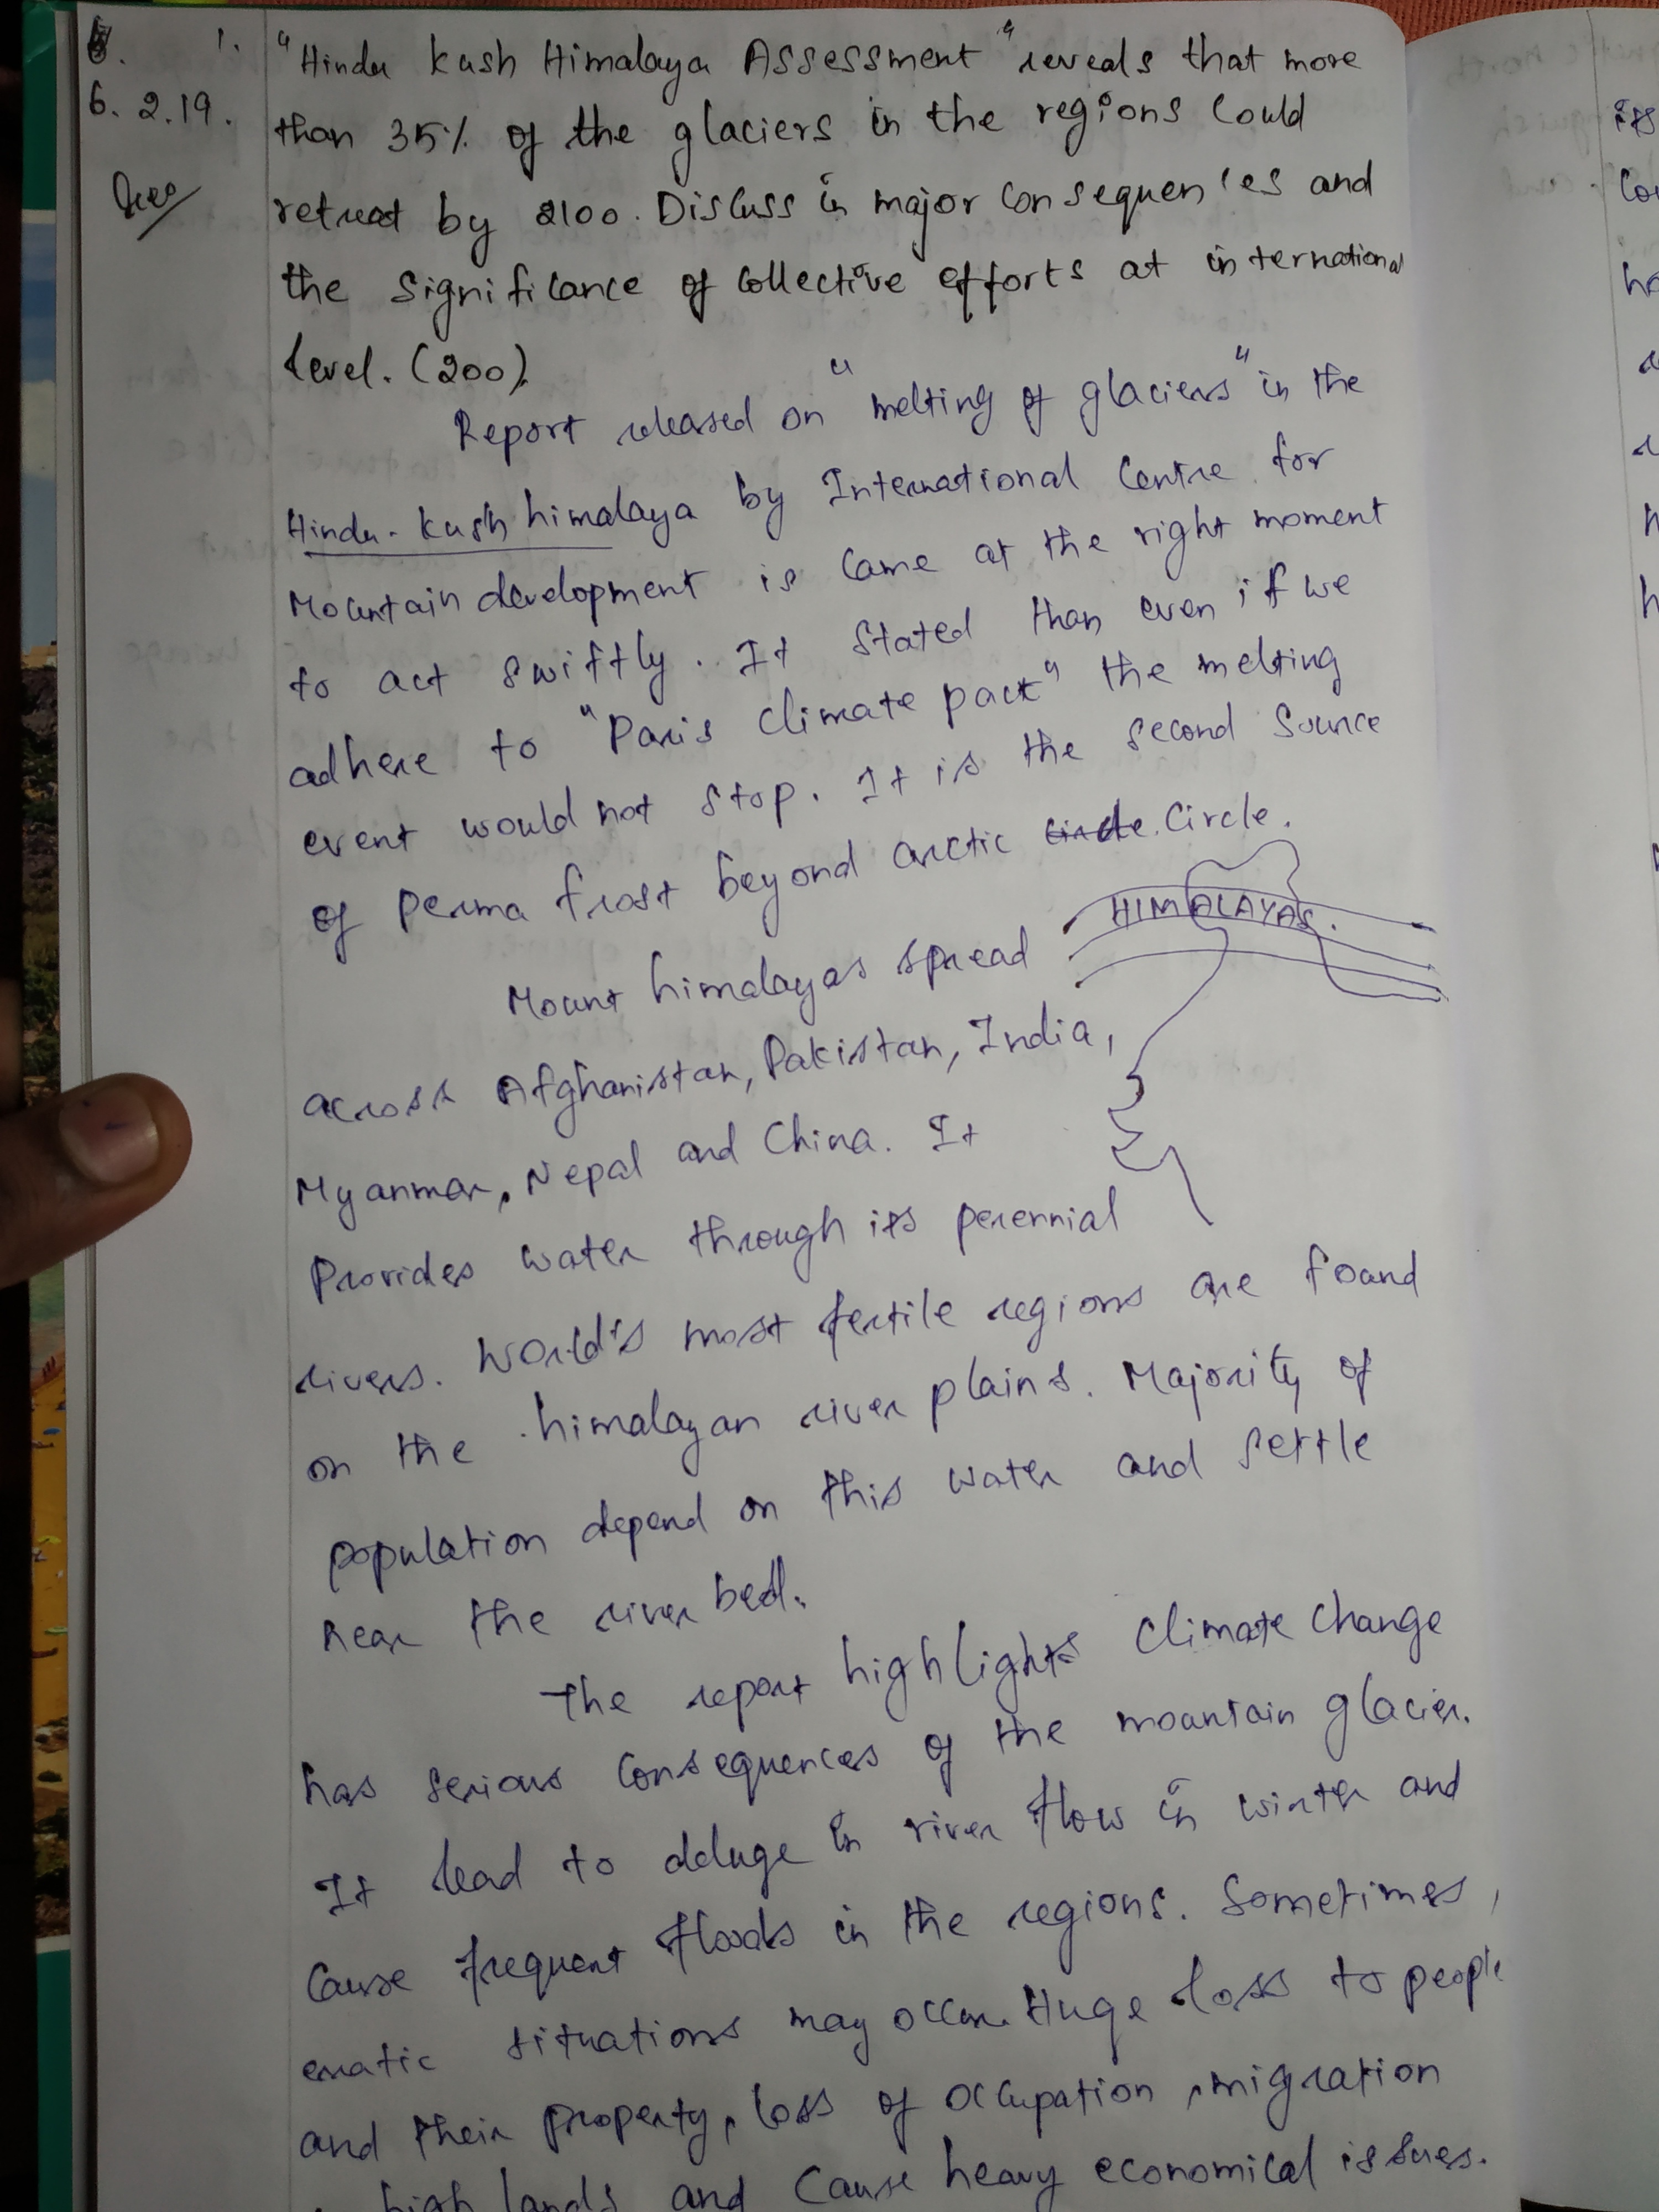 1. "Hindu Kush Himalaya Assessment" reveals that more
6.2.19. than 35% of the glaciers in the regions could
retreat by 2100. Discuss is major consequences and
the significance of collective efforts at international
level. (200).
Report released on "melting of glaciers" in the
Hindu-kush himalaya by International Centre for
Mountain development is came at the right moment
to act swiftly. It stated than even if we
adhere to "Paris climate pact" the melting
event would not stop. It is the second source
of perma frost beyond arctic circle.
HIMALAYAS.
Mount himalayas spread
across Afghanistan, Pakistan, India,
Myanmar, Nepal and China. It
Provides water through its perennial
rivers. World's most fertile regions are found
on the himalayan river plains. Majority of
population depend on this water and settle
near the river bed.
The report highlights climate change
has serious consequences of the mountain glacier.
It lead to deluge in river flow in winter and
cause frequent floods in the regions. Sometimes,
erratic situations may occur. Huge loss to people
and their property, loss of occupation, migration
high lands and cause heavy economical issues.